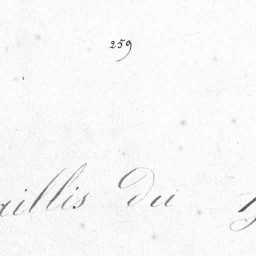 259
aillis du